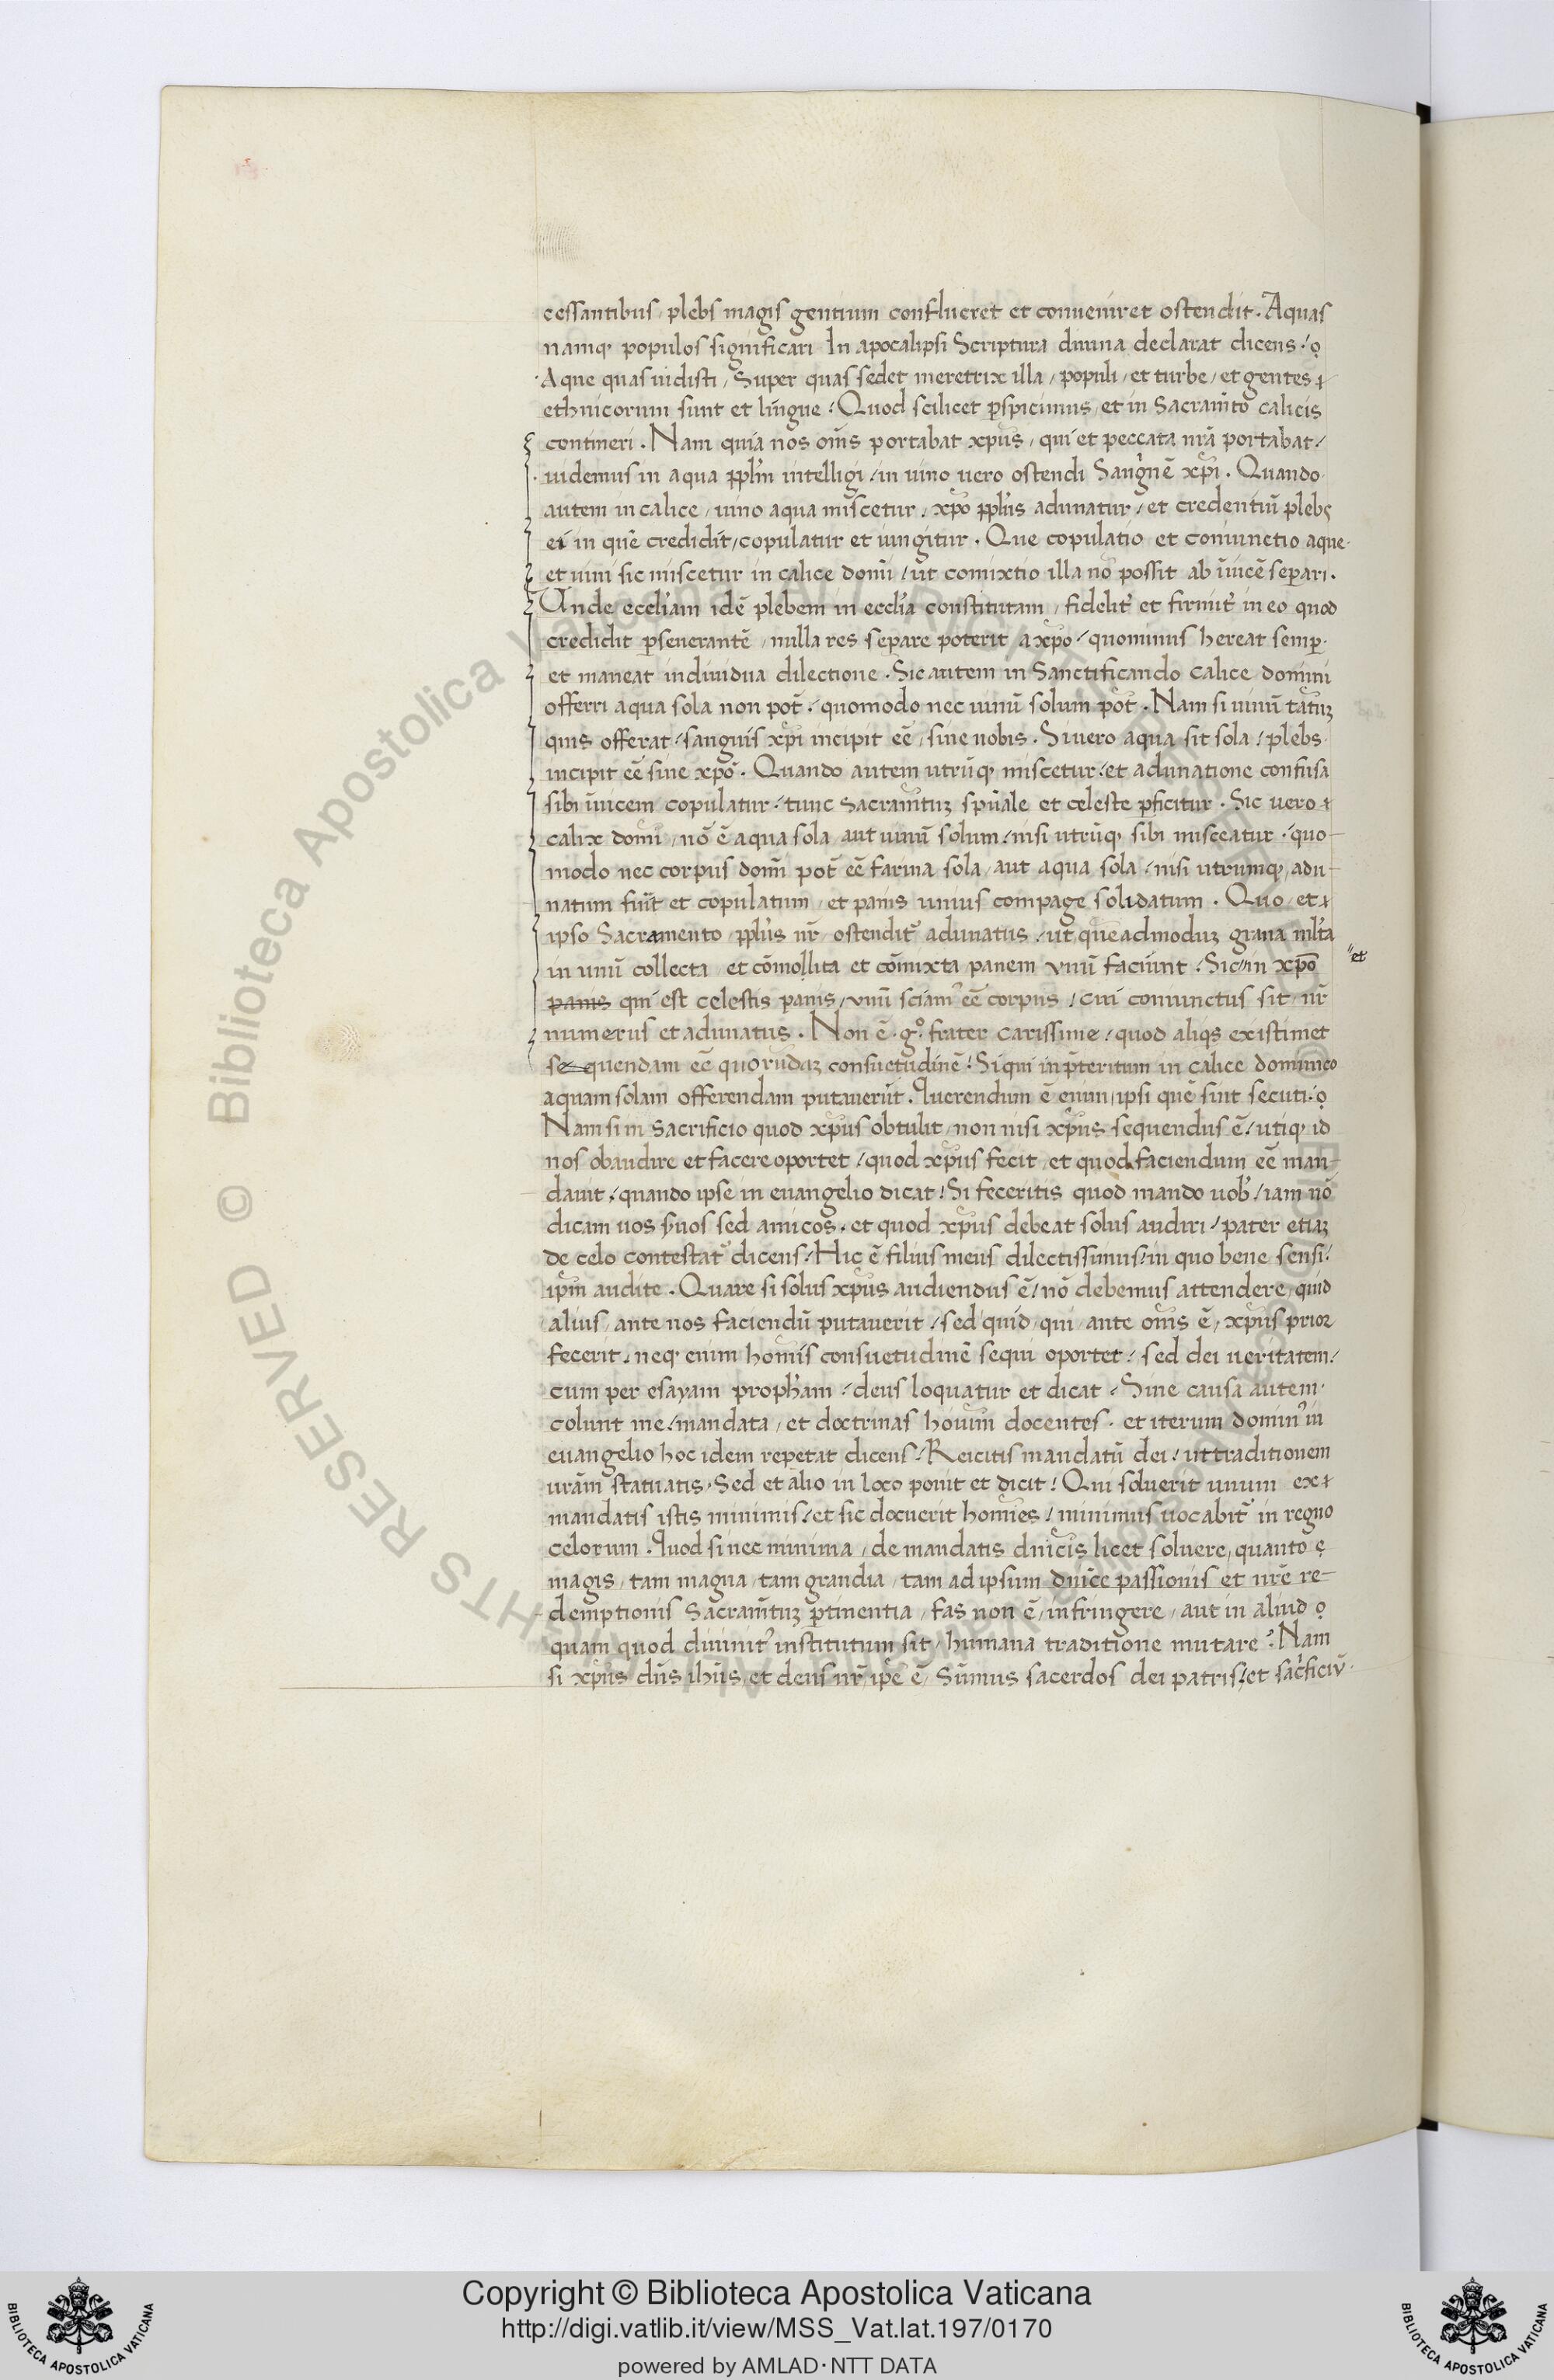 cessantibus / plebs magis gentium conflueret et conueniret ostendit. Aquas
namq; populos significari In apocalipsi Scriptura diuina declarat dicens /
Aque quas uidisti / Super quas sedet meretrix illa / populi / et turbe / et gentes
ethnicorum sunt et lingue / Quod scilicet ꝑspicimus / et in Sacram̄to calicis
contineri . Nam quia nos om̄s portabat xp̄us / qui et peccata nr̄a portabat /
uidemus in aqua ppl̄m intelligi / in uino uero ostendi Sanguinē xp̄i . Quando
autem in calice / uino aqua miscetur / xp̄o ppl̄us adunatur / et credentiū plebs
ei in quē credidit / copulatur et iungitur . Que copulatio et coniunctio aque
et uini sic miscetur in calice domī / ut comixtio illa nō possit ab īuicē separi .
Unde eccl̄iam idē plebem in eccl̄ia constitutam / fidelit̄ et firmit̄ in eo quod
credidit ꝑseuerantē / nulla res separe poterit a xp̄o / quominus hereat semꝑ
et maneat indiuidua dilectione . Sic autem in Sanctificando calice domini
offerri aqua sola non pot̄ / quomodo nec uinū solum pot̄ . Nam si uinū tātuꝫ
quis offerat / sanguis xp̄i incipit eē / sine nobis . Si uero aqua sit sola / plebs
incipit eē sine xp̄o . Quando autem utrūq; miscetur / et adunatione confusa
sibi īuicem copulatur / tunc Sacram̄tuꝫ spūale et celeste ꝑficitur . Sic uero
calix domī / nō ē aqua sola aut uinū solum / nisi utrūq; sibi misceatur / quo-
modo nec corpus dom̄i pot̄ eē farina sola / aut aqua sola / nisi utrumq; adu-
natum fūit et copulatum / et panis unius compage solidatum . Quo et
ipso Sacramento / ppl̄us nr̄ ostendit̄ adunatus / ut quēadmoduꝫ grana ml̄ta
in unū collecta / et cōmollita et cōmixta panem vnū faciunt / Sic // in xp̄o
"et
panis qui est celestis panis / vnū sciam᾽ eē corpus / cui coniunctus sit nr̄
numerus et adunatus . Non ē . gͦ . frater carissime / quod aliqs existimet
sequendam eē quorūdaꝫ consuetudinē / Si qui in p̄teritum in calice dominico
aquam solam offerendam putauerūt . Querendum ē enim / ipsi quē sint secuti .
Nam si in sacrificio quod xp̄us obtulit / non nisi xp̄us sequendus ē / utiq; id
nos obaudire et facere oportet / quod xp̄us fecit / et quod faciendum eē man-
dauit / quando ipse in euangelio dicat / Si feceritis quod mando uob̄ / iam nō
dicam uos s̄uos sed amicos . et quod xp̄us debeat solus audiri / pater etiaꝫ
de celo contestat̄ dicens / Hic ē filius meus dilectissimus / in quo bene sensi /
ip̄m audite . Quare si solus xp̄us audiendus ē / nō debemus attendere / quid
alius / ante nos faciendū putauerit / sed quid / qui ante om̄s ē / xp̄us prior
fecerit / neq; enim hom̄is consuetudinē sequi oportet / sed dei ueritatem /
cum per esayam proph̄am / deus loquatur et dicat / Sine causa autem
colunt me / mandata / et doctrinas houim̄ docentes . et iterum domin᾽ in
euangelio hoc idem repetat dicens / Reicitis mandatū dei / ut traditionem
ur̄am statuatis . Sed et ālio in loco ponit et dicit / Qui soluerit unum ex
mandatis istis minimis / et sic docuerit homīes / minimus uocabit̄ in regno
celorum . Quod si nec minima / de mandatis dn̄icis licet soluere / quanto
magis / tam magna / tam grandia / tam ad ipsum dn̄ice passionis et nr̄e re-
demptionis Sacram̄tuꝫ ꝑtinentia / fas non ē / infringere / aut in aliud
quam quod diuinit̄ institutum sit / humana traditione mutare ? Nam
si xp̄us dn̄s ihūs / et deus nr̄ ip̄e ē / Sūmus sacerdos dei patris / et sacrificiū
Copyright © Biblioteca Apostolica Vaticana
http://digi.vatlib.it/view/MSS_Vat.lat.197/0170
powered by AMLAD·NTT DATA